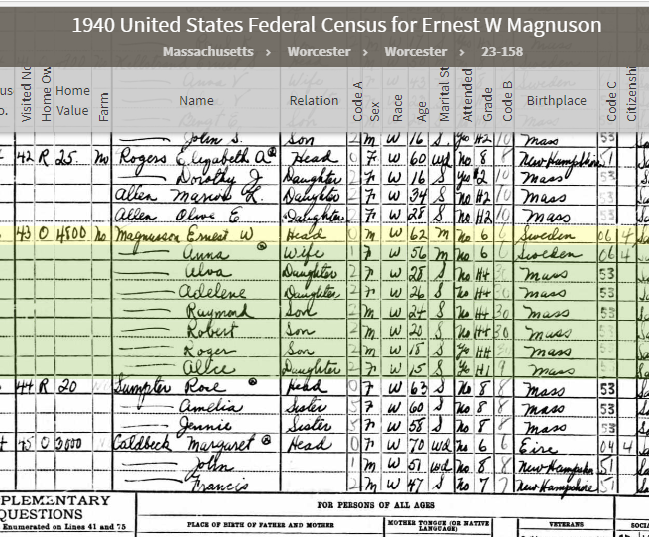 1940 United States Federal Census for Ernest W Magnuson
Massachusetts > Worcester > Worcester > 23-158
Visited No Home Ow Home Value Farm Name Relation Code A Sex Race Age Marital St Attended Grade Code B Birthplace Code C Citizenshi
John S. Son 2 M W 16 S Yes H2 10 Mass 53
42 R 25. No Rogers Elizabeth A Head 0 F W 60 wd No 8 8 New Hampshire 51
Dorothy J Daughter 2 F W 16 S Yes H2 10 Mass 53
Allen L. Daughter 2 F W 34 S No H2 10 Mass 53
Allen Olive E Daughter 2 F W 28 S No H2 10 Mass 53
43 O 4800 No Magnuson Ernest W Head 0 M W 62 M No 6 6 Sweden 06 4
Anna Wife 1 F W 56 M No 6 6 Sweden 06 4
Daughter 2 F W 28 S No H4 30 Mass 53
Adelene Daughter 2 F W 26 S No H4 30 Mass 53
Raymond Son 2 M W 24 S No H4 30 Mass 53
Robert Son 2 M W 20 S No H4 30 Mass 53
Roger Son 2 M W 18 S Yes H4 Mass 53
Alice Daughter 2 F W 15 S Yes H1 9 Mass 53
44 R 20 Sumpter Rose Head 0 F W 63 S No 8 8 Mass 53
Amelia Sister 5 F W 60 S No 8 8 Mass 53
Jennie Sister 5 F W 58 S No 8 8 Mass 53
45 O 3000 Caldbeck Margaret Head 0 F W 70 wd No 6 6 Eire 04 4
John 1 M W 51 wd No 8 8 New Hampshire 51
Francis 2 M W 47 S No 7 7 New Hampshire 51
PLEMENTARY
QUESTIONS
Enumerated on Lines 41 and 75
FOR PERSONS OF ALL AGES
PLACE OF BIRTH OF FATHER AND MOTHER
MOTHER TONGUE (OR NATIVE LANGUAGE)
VETERANS
SOCIA